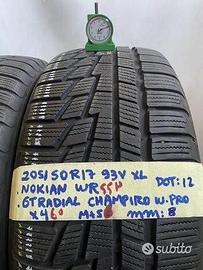 205/50R17 93V XL DOT:12
.NOKIAN WR
.GTRADIAL CHAMPIRO W.PRO
X4 M+S mm: 8